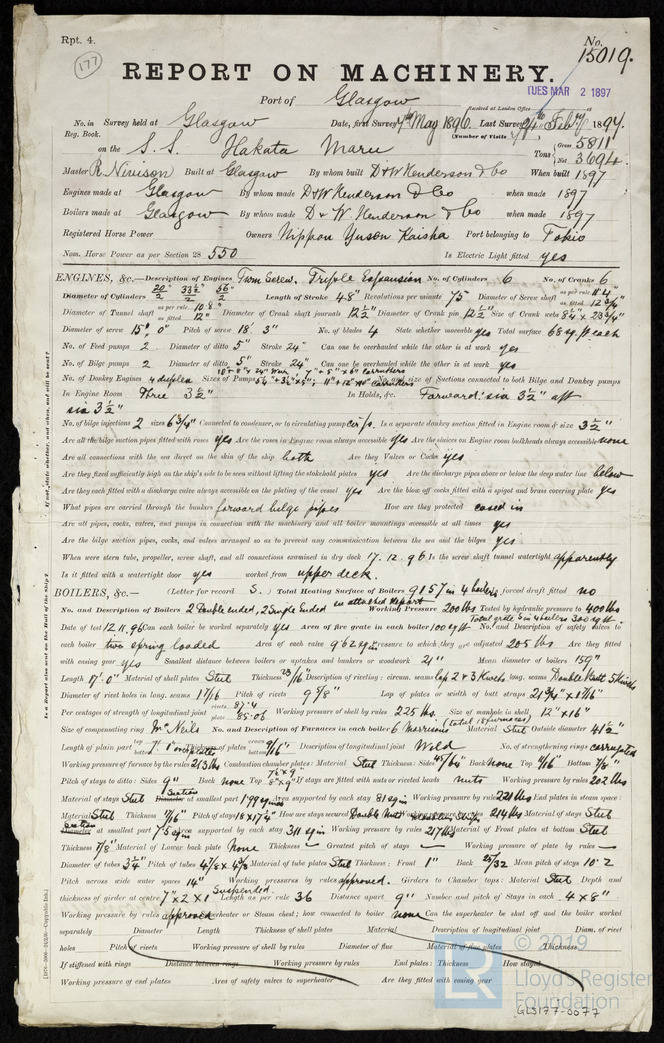 Rpt. 4.
No. 15019.
177
REPORT ON MACHINERY.
TUES MAR 2 1897
Port of Glasgow
Received at London Office
No. in Survey held at Glasgow Date, first Survey 7th May 1896 Last Survey 24th Feby 1897
Reg. Book. (Number of Visits
on the S.S. Hakata Maru Tons Gross 5811 Net 3694
Master R. Nimison Built at Glasgow By whom built D & W Henderson & Co When built 1897
Engines made at Glasgow By whom made D & W Henderson & Co when made 1897
Boilers made at Glasgow By whom made D & W. Henderson & Co when made 1897
Registered Horse Power Owners Nippon Yusen Kaisha Port belonging to Tokio
Nom. Horse Power as per Section 28 550 Is Electric Light fitted yes
ENGINES, &c.—Description of Engines Twin Screw. Triple Expansion No. of Cylinders 6 No. of Cranks 6
Diameter of Cylinders 20"/2 33½"/2 56"/2 Length of Stroke 48" Revolutions per minute 75 Diameter of Screw shaft as per rule 11.4 as fitted 12¾"
Diameter of Tunnel shaft as per rule 10.8" as fitted 12" Diameter of Crank shaft journals 12½" Diameter of Crank pin 12½" Size of Crank webs 8¼" x 23¾"
Diameter of screw 15' 0" Pitch of screw 18' 3" No. of blades 4 State whether moveable yes Total surface 68 sq ft each
No. of Feed pumps 2 Diameter of ditto 5" Stroke 24" Can one be overhauled while the other is at work yes
No. of Bilge pumps 2 Diameter of ditto 5" Stroke 24" Can one be overhauled while the other is at work yes
No. of Donkey Engines 4 duplex Sizes of Pumps and size of Suctions connected to both Bilge and Donkey pumps
In Engine Room Three 3½" In Holds, &c. Forward: six 3½" aft
six 3½"
No. of bilge injections 2 sizes 6¾" Connected to condenser, or to circulating pump cir/p. Is a separate donkey suction fitted in Engine room & size 3½"
Are all the bilge suction pipes fitted with roses yes Are the roses in Engine room always accessible yes Are the sluices on Engine room bulkheads always accessible none
Are all connections with the sea direct on the skin of the ship both Are they Valves or Cocks yes
Are they fixed sufficiently high on the ship's side to be seen without lifting the stokehold plates yes Are the discharge pipes above or below the deep water line below
Are they each fitted with a discharge valve always accessible on the plating of the vessel yes Are the blow off cocks fitted with a spigot and brass covering plate yes
What pipes are carried through the bunkers forward bilge pipes How are they protected cased in
Are all pipes, cocks, valves, and pumps in connection with the machinery and all boiler mountings accessible at all times yes
Are the bilge suction pipes, cocks, and valves arranged so as to prevent any communication between the sea and the bilges yes
When were stern tube, propeller, screw shaft, and all connections examined in dry dock 17.12.96 Is the screw shaft tunnel watertight apparently
Is it fitted with a watertight door yes worked from upper deck.
BOILERS, &c.— (Letter for record S.) Total Heating Surface of Boilers 9157 in 4 boilers forced draft fitted no
No. and Description of Boilers 2 Double ended, 2 Single Ended in attached report Working Pressure 200 lbs Tested by hydraulic pressure to 400 lbs
Total grate S in 4 boilers 300 sq ft
Date of test 12.11.96 Can each boiler be worked separately yes Area of fire grate in each boiler 100 sq ft No. and Description of safety valves to
each boiler two spring loaded Area of each valve 9.62 sq in Pressure to which they are adjusted 205 lbs Are they fitted
with easing gear yes Smallest distance between boilers or uptakes and bunkers or woodwork 21" Mean diameter of boilers 159"
Length 17' 0" Material of shell plates Steel Thickness 23/16" Description of riveting: circum. seams lap 2 & 3 Riveted long. seams Double Butt 5 Rivets
Diameter of rivet holes in long. seams 17/16 Pitch of rivets 9 5/8" Lap of plates or width of butt straps 21¾" x 1 1/16"
Per centages of strength of longitudinal joint rivets 87.4 plate 85.06 Working pressure of shell by rules 225 lbs. Size of manhole in shell 12" x 16"
(total 18 furnaces)
Size of compensating ring McNeils No. and Description of Furnaces in each boiler 6 Morrisons Material Steel Outside diameter 41½"
Length of plain part top bottom Thickness of plates crown bottom 9/16" Description of longitudinal joint Weld No. of strengthening rings corrugated
Working pressure of furnace by the rules 213 lbs Combustion chamber plates: Material Steel Thickness: Sides Back none Top 11/16" Bottom 7/8"
Pitch of stays to ditto: Sides 9" Back none Top If stays are fitted with nuts or riveted heads nuts Working pressure by rules 202 lbs
Material of stays Steel Section Diameter at smallest part 1.99 sq ins Area supported by each stay 81 sq in Working pressure by rules 221 lbs End plates in steam space:
Material Steel Thickness 1 1/16" Pitch of stays 18 x 17½" How are stays secured Double Nuts Working pressure by rules 214 lbs Material of stays Steel
Section Diameter at smallest part 7.5 sq in Area supported by each stay 311 sq in Working pressure by rules 217 lbs Material of Front plates at bottom Steel
Thickness 7/8" Material of Lower back plate None Thickness — Greatest pitch of stays — Working pressure of plate by rules —
Diameter of tubes 3¼" Pitch of tubes 4 7/8 x 4 5/8 Material of tube plates Steel Thickness: Front 1" Back 25/32 Mean pitch of stays 10.2
Pitch across wide water spaces 14" Working pressures by rules approved. Girders to Chamber tops: Material Steel Depth and
Suspended.
thickness of girder at centre 7" x 2 x 1 Length as per rule 36 Distance apart 9" Number and pitch of Stays in each 4 x 8"
Working pressure by rules approved Superheater or Steam chest; how connected to boiler none Can the superheater be shut off and the boiler worked
separately Diameter Length Thickness of shell plates Material Description of longitudinal joint Diam. of rivet
holes Pitch of rivets Working pressure of shell by rules Diameter of flue Material of flue plates Thickness
If stiffened with rings Distance between rings Working pressure by rules End plates: Thickness How stayed
Working pressure of end plates Area of safety valves to superheater Are they fitted with easing gear
If not, state whether, and when, one will be sent?
Is a Report also sent on the Hull of the Ship?
© 2019
LR
Lloyd's Register
Foundation
GLS177-0077